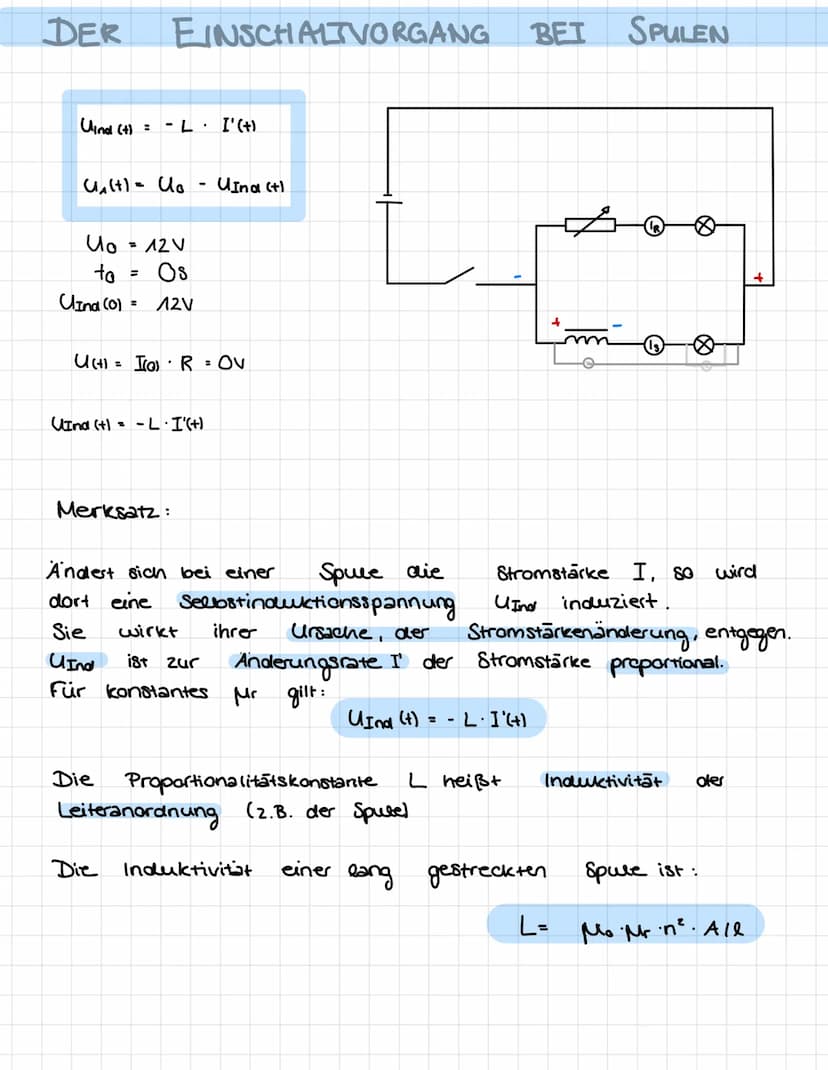 DER EINSCHALTVORGANG BEI SPULEN
UInd (t) = - L · I'(t)
U1(t) = U0 - UInd (t)
U0 = 12V
t0 = 0s
UInd (0) = 12V
U(t) = I(0) · R = 0V
UInd (t) = - L · I'(t)
IR
-
+
+
-
IS
Merksatz:
Ändert sich bei einer Spule die Stromstärke I, so wird
dort eine Selbstinduktionsspannung UInd induziert.
Sie wirkt ihrer Ursache, der Stromstärkenänderung, entgegen.
UInd ist zur Änderungsrate I' der Stromstärke proportional.
Für konstantes μr gilt:
UInd (t) = - L · I'(t)
Die Proportionalitätskonstante L heißt Induktivität der
Leiteranordnung (z.B. der Spule)
Die Induktivität einer lang gestreckten Spule ist:
L= μ0 · μr · n² · A/l